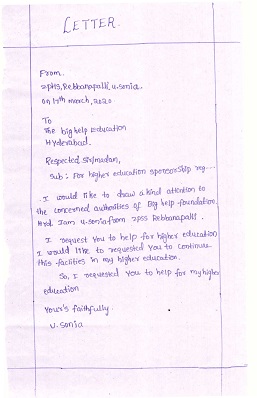 LETTER.
From,
ZPHS, Rebbanapalli, U.Sonia.
On 17th march, 2020
To
The big help Education
Hyderabad.
Respected Sir/madam,
Sub : For higher education sponsorship reg---
I would like to draw a kind attention to
the concerned authorities of Big help foundation,
Hyd. I am U.Sonia from ZPSS Rebbanapalli.
I request You to help for higher education
I would like to requested You to continue
this facities in my higher education.
So, I requested you to help for my higher
education
Your's faithfully.
U. Sonia